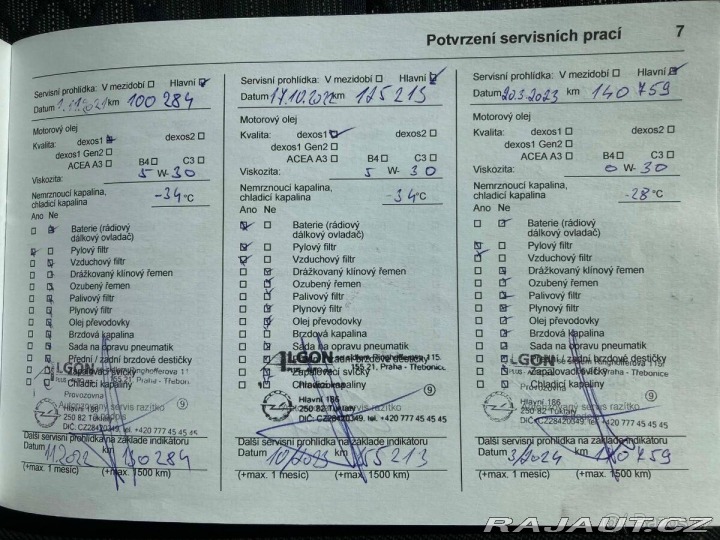 Potvrzení servisních prací 7
Servisní prohlídka: V mezidobí Hlavní
Datum 1.11.2021 km 100 284
Motorový olej
Kvalita: dexos1 dexos2
dexos1 Gen2
ACEA A3 B4 C3
Viskozita: 5 W- 30
Nemrznoucí kapalina,
chladicí kapalina -34 °C
Ano Ne
Baterie (rádiový
dálkový ovladač)
Pylový filtr
Vzduchový filtr
Drážkovaný klínový řemen
Ozubený řemen
Palivový filtr
Plynový filtr
Olej převodovky
Brzdová kapalina
Sada na opravu pneumatik
Přední / zadní brzdové destičky
Zapalovací svíčky
Chladicí kapaliny
LGON
Provozovna
Hlavní 186
250 82 Tuklaty
DIČ: CZ28420349, tel. +420 777 45 45 45
Autorizovaný servis razítko
9
Další servisní prohlídka na základě indikátoru
Datum 11/2022 km 130 284
(+max. 1 měsíc) (+max. 1500 km)
Servisní prohlídka: V mezidobí Hlavní
Datum 17.10.2022 km 125 213
Motorový olej
Kvalita: dexos1 dexos2
dexos1 Gen2
ACEA A3 B4 C3
Viskozita: 5 W- 30
Nemrznoucí kapalina,
chladicí kapalina -34 °C
Ano Ne
Baterie (rádiový
dálkový ovladač)
Pylový filtr
Vzduchový filtr
Drážkovaný klínový řemen
Ozubený řemen
Palivový filtr
Plynový filtr
Olej převodovky
Brzdová kapalina
Sada na opravu pneumatik
Přední / zadní brzdové destičky
Zapalovací svíčky
LGON
se sídlem Ringhofferova 115,
155 21, Praha - Třebonice
Hlavní 186
250 82 Tuklaty
DIČ: CZ28420349, tel. +420 777 45 45 45
servis razítko
9
Další servisní prohlídka na základě indikátoru
Datum 10/2023 km 155 213
(+max. 1 měsíc) (+max. 1500 km)
Servisní prohlídka: V mezidobí Hlavní
Datum 20.3.2023 km 140 759
Motorový olej
Kvalita: dexos1 dexos2
dexos1 Gen2
ACEA A3 B4 C3
Viskozita: 0 W- 30
Nemrznoucí kapalina,
chladicí kapalina -28 °C
Ano Ne
Baterie (rádiový
dálkový ovladač)
Pylový filtr
Vzduchový filtr
Drážkovaný klínový řemen
Ozubený řemen
Palivový filtr
Plynový filtr
Olej převodovky
Brzdová kapalina
Sada na opravu pneumatik
Přední / zadní brzdové destičky
Zapalovací svíčky
Chladicí kapaliny
LGON
Provozovna
Hlavní 186
250 82 Tuklaty
DIČ: CZ28420349, tel. +420 777 45 45 45
servis razítko
9
Další servisní prohlídka na základě indikátoru
Datum 3/2024 km 170 759
(+max. 1 měsíc) (+max. 1500 km)
RAJAUT.CZ